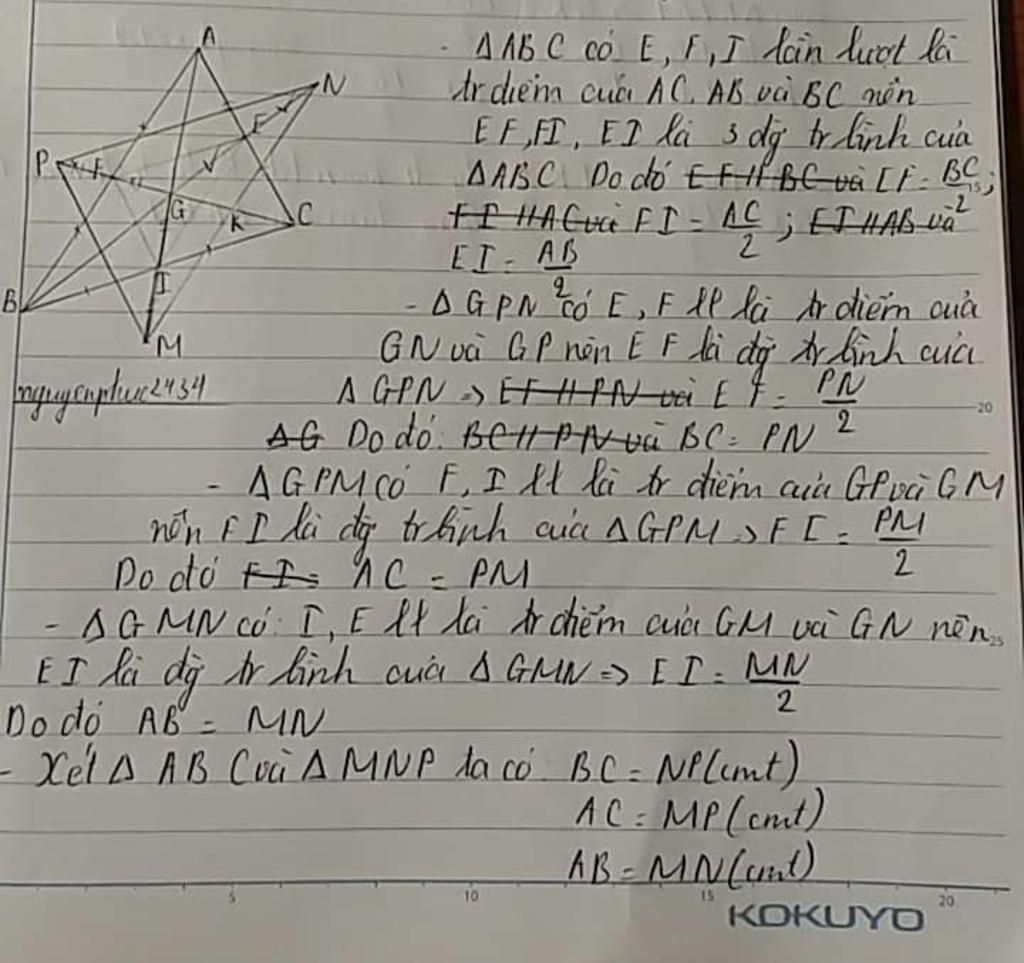 A
N
E
P
F
G
K
C
I
B
M
nguyenphuc2434
- ΔABC có E, F, I lần lượt là
tr điểm của AC, AB và BC nên
EF, FI, EI là 3 đg tr bình của
ΔABC. Do đó EF // BC và EF = BC/2;
FI // AC và FI = AC/2; EI // AB và
EI = AB/2
- ΔGPN có E, F ll là tr điểm của
GN và GP nên EF là đg tr bình của
ΔGPN => EF // PN và EF = PN/2
ΔG Do đó: BC // PN và BC = PN
- ΔGPM có F, I ll là tr điểm của GP và GM
nên FI là đg tr bình của ΔGPM => FI = PM/2
Do đó FI = AC = PM
- ΔGMN có I, E ll là tr điểm của GM và GN nên
EI là đg tr bình của ΔGMN => EI = MN/2
Do đó AB = MN
- Xét ΔABC và ΔMNP ta có: BC = NP (cmt)
AC = MP (cmt)
AB = MN (cmt)
15
20
25
5
10
15
20
KOKUYO